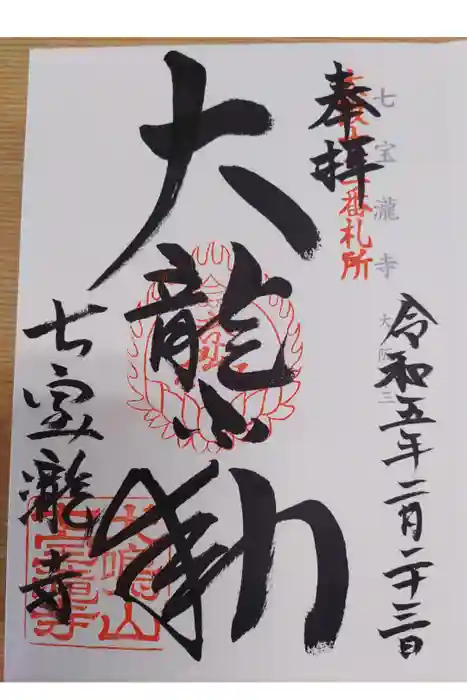 七宝瀧寺
番札所
奉拝
令和五年二月二十三日
大龍不動
七宝瀧寺
犬鳴山
七宝瀧寺